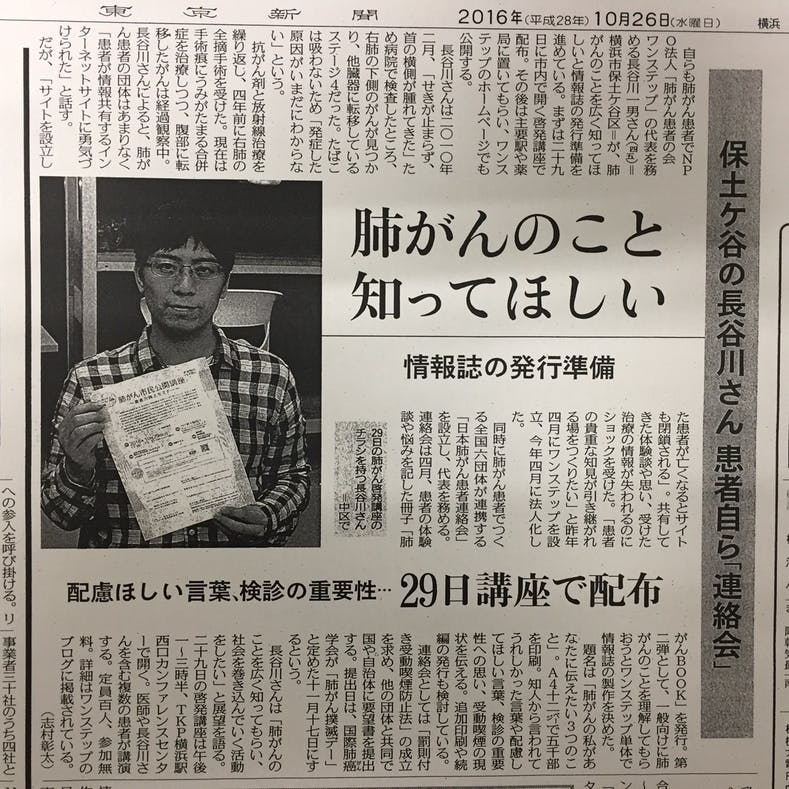 東京新聞
2016年(平成28年)10月26日(水曜日)
横浜
保土ケ谷の長谷川さん 患者自ら「連絡会」
肺がんのこと
知ってほしい
情報誌の発行準備
配慮ほしい言葉、検診の重要性…
29日講座で配布
自らも肺がん患者でNP
O法人「肺がん患者の会
ワンステップ」の代表を務
める長谷川一男さん(四五)=
横浜市保土ケ谷区=が、肺
がんのことを広く知ってほ
しいと情報誌の発行準備を
進めている。まずは二十九
日に市内で開く啓発講座で
配布。その後は主要駅や薬
局に置いてもらい、ワンス
テップのホームページでも
公開する。
長谷川さんは二〇一〇年
二月、「せきが止まらず、
首の横側が腫れてきた」た
め病院で検査したところ、
右肺の下側のがんが見つか
り、他臓器に転移している
ステージ4だった。たばこ
は吸わないため「発症した
原因がいまだにわからな
い」という。
抗がん剤と放射線治療を
繰り返し、四年前に右肺の
全摘手術を受けた。現在は
手術痕にうみがたまる合併
症を治療しつつ、腹部に転
移したがんは経過観察中。
長谷川さんによると、肺が
ん患者の団体はあまりなく
「患者が情報共有するイン
ターネットサイトに勇気づ
けられた」と話す。
だが、「サイトを設立し
た患者が亡くなるとサイト
も閉鎖される」。共有して
きた体験談や思い、受けた
治療の情報が失われるのに
ショックを受けた。「患者
の貴重な知見が引き継がれ
る場をつくりたい」と昨年
四月にワンステップを設
立、今年四月に法人化し
た。
同時に肺がん患者でつく
る全国六団体が連携する
「日本肺がん患者連絡会」
を設立し、代表を務める。
連絡会は四月、患者の体験
談や悩みを記した冊子「肺
がんBOOK」を発行。第
二弾として、一般向けに肺
がんのことを理解してもら
おうとワンステップ単体で
情報誌の製作を決めた。
題名は「肺がんの私があ
なたに伝えたい8つのこ
と」。A4十二ページで五千部
を印刷。知人から言われて
うれしかった言葉や配慮し
てほしい言葉、検診の重要
性への思い、受動喫煙の現
状を伝える。追加印刷や続
編の発行も検討している。
連絡会としては「罰則付
き受動喫煙防止法」の成立
を求め、他の団体と共同で
国や自治体に要望書を提出
する。提出日は、国際肺癌
学会が「肺がん撲滅デー」
と定めた十一月十七日にす
るという。
長谷川さんは「肺がんの
ことを広く知ってもらい、
社会を巻き込んでいく活動
をしたい」と展望を語る。
二十九日の啓発講座は午後
一〜三時半、TKP横浜駅
西口カンファレンスセンタ
ーで開く。医師や長谷川さ
んを含む複数の患者が講演
する。定員百人、参加無
料。詳細はワンステップの
ブログに掲載されている。
(志村彰太)
29日の肺がん啓発講座の
チラシを持つ長谷川さん
=中区で
肺がん市民公開講座
への参入を呼び掛ける。リ
事業者三十社のうち四社と